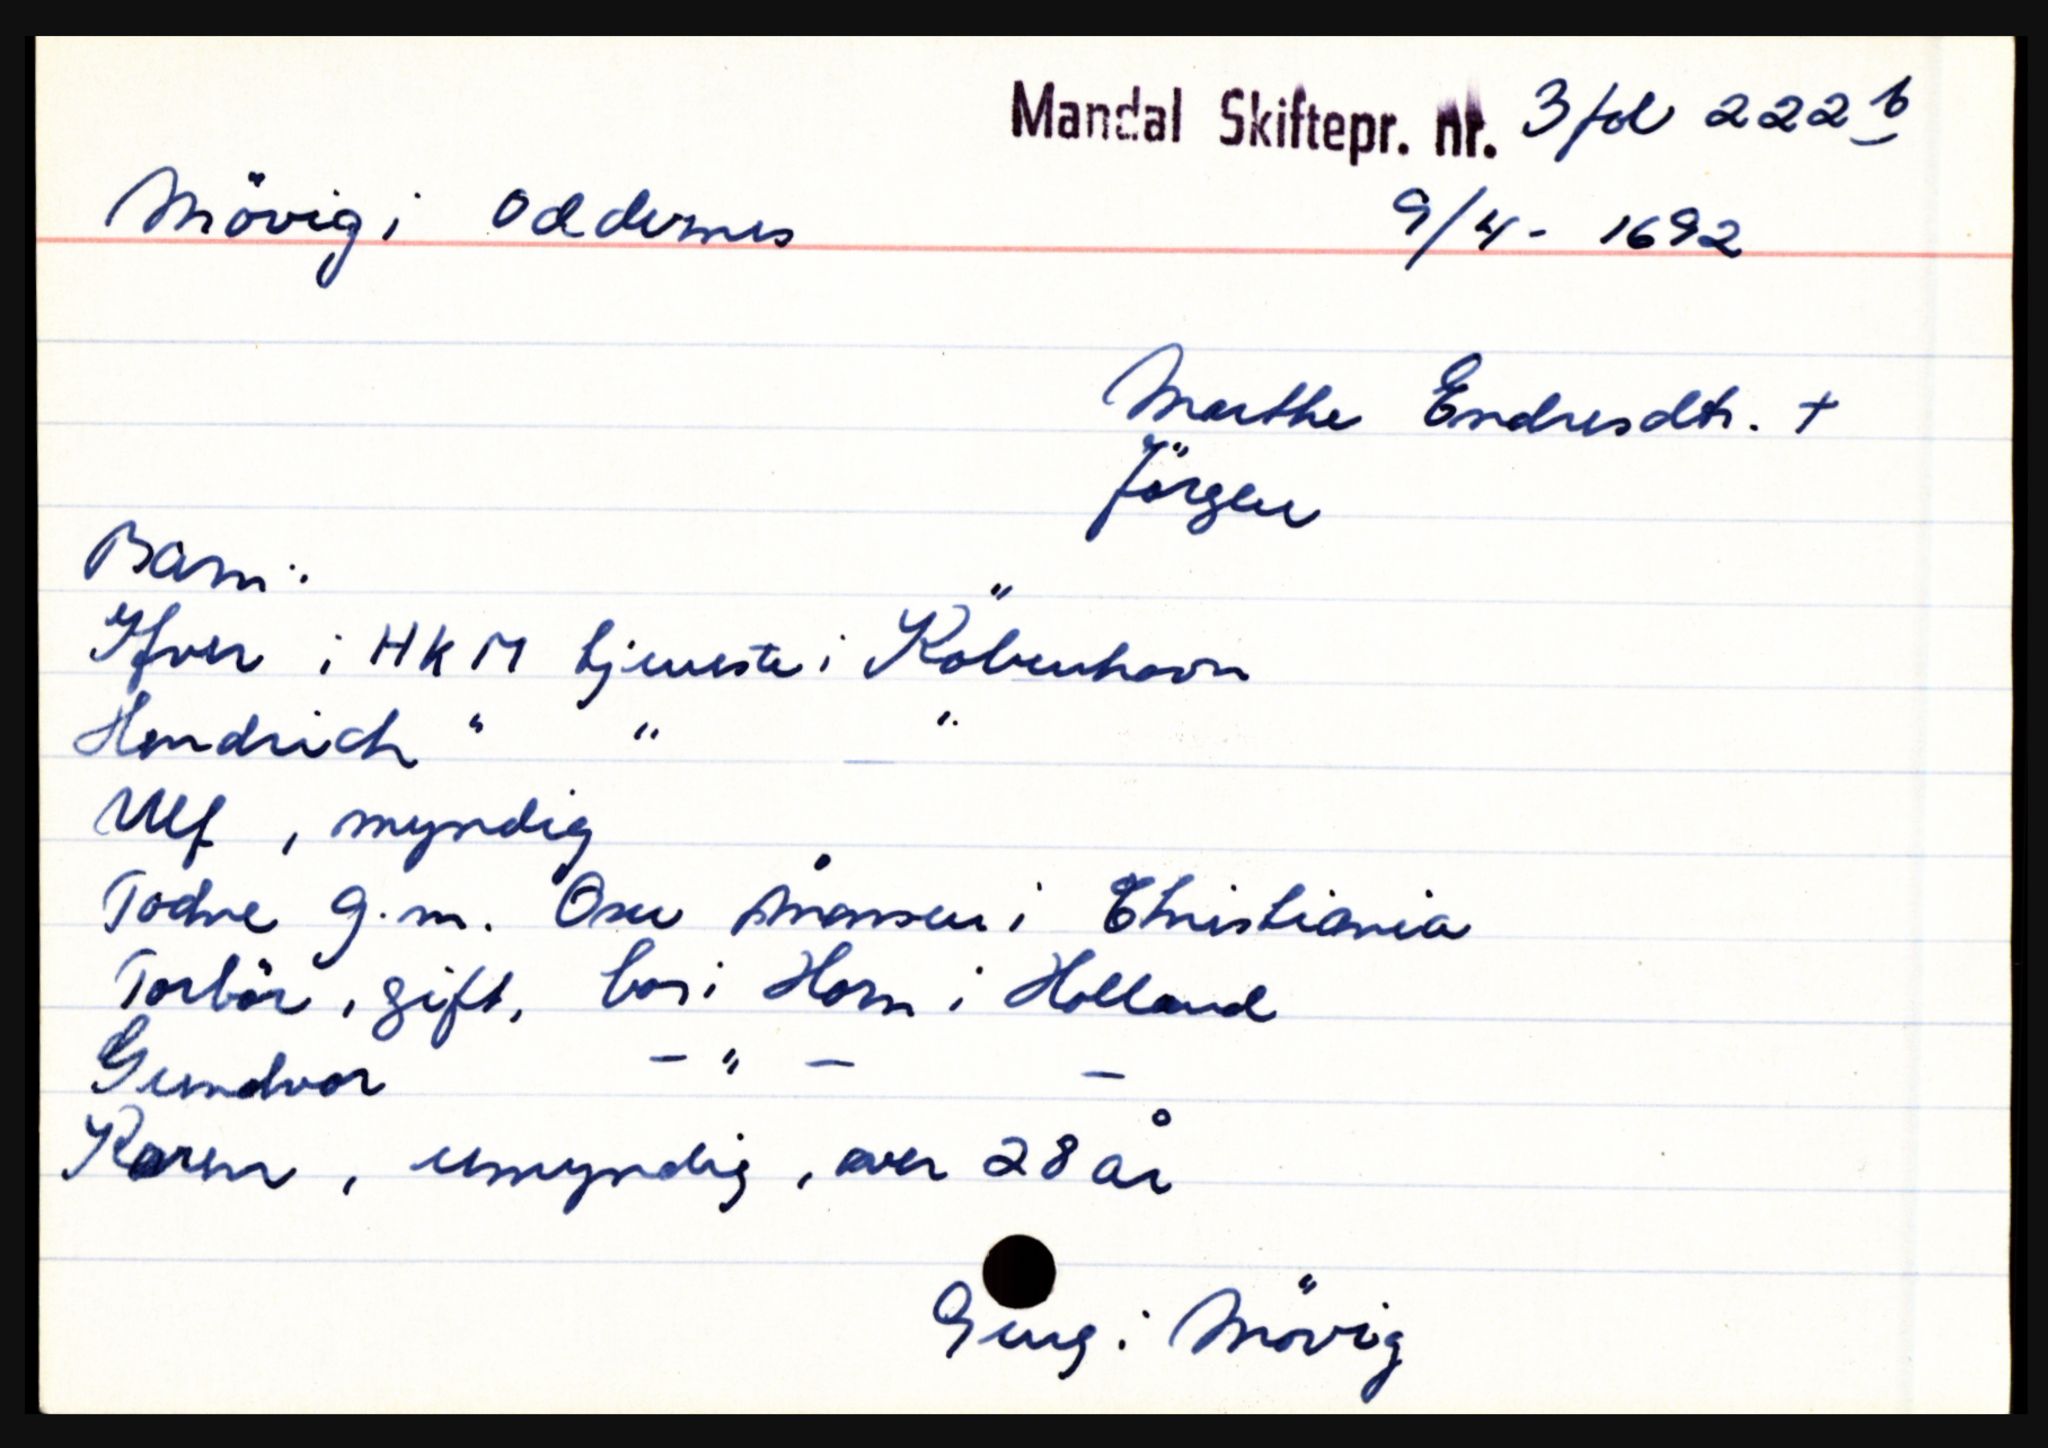 Mandal Skiftepr. nr. 3 fol 222 b
Mövig i Oddernes 9/4 - 1692
Marthe Endresdtr. +
Jörgen
Barn:
Ifver i HKM tjeneste i Köbenhavn
Hendrich " " "
Ulf, myndig
Todne g.m. Osu i Christiania
Torbör, gift, bor i Horn i Holland
Gundvor - " - -
Karen, umyndig, over 28 år
Gung i Mövig